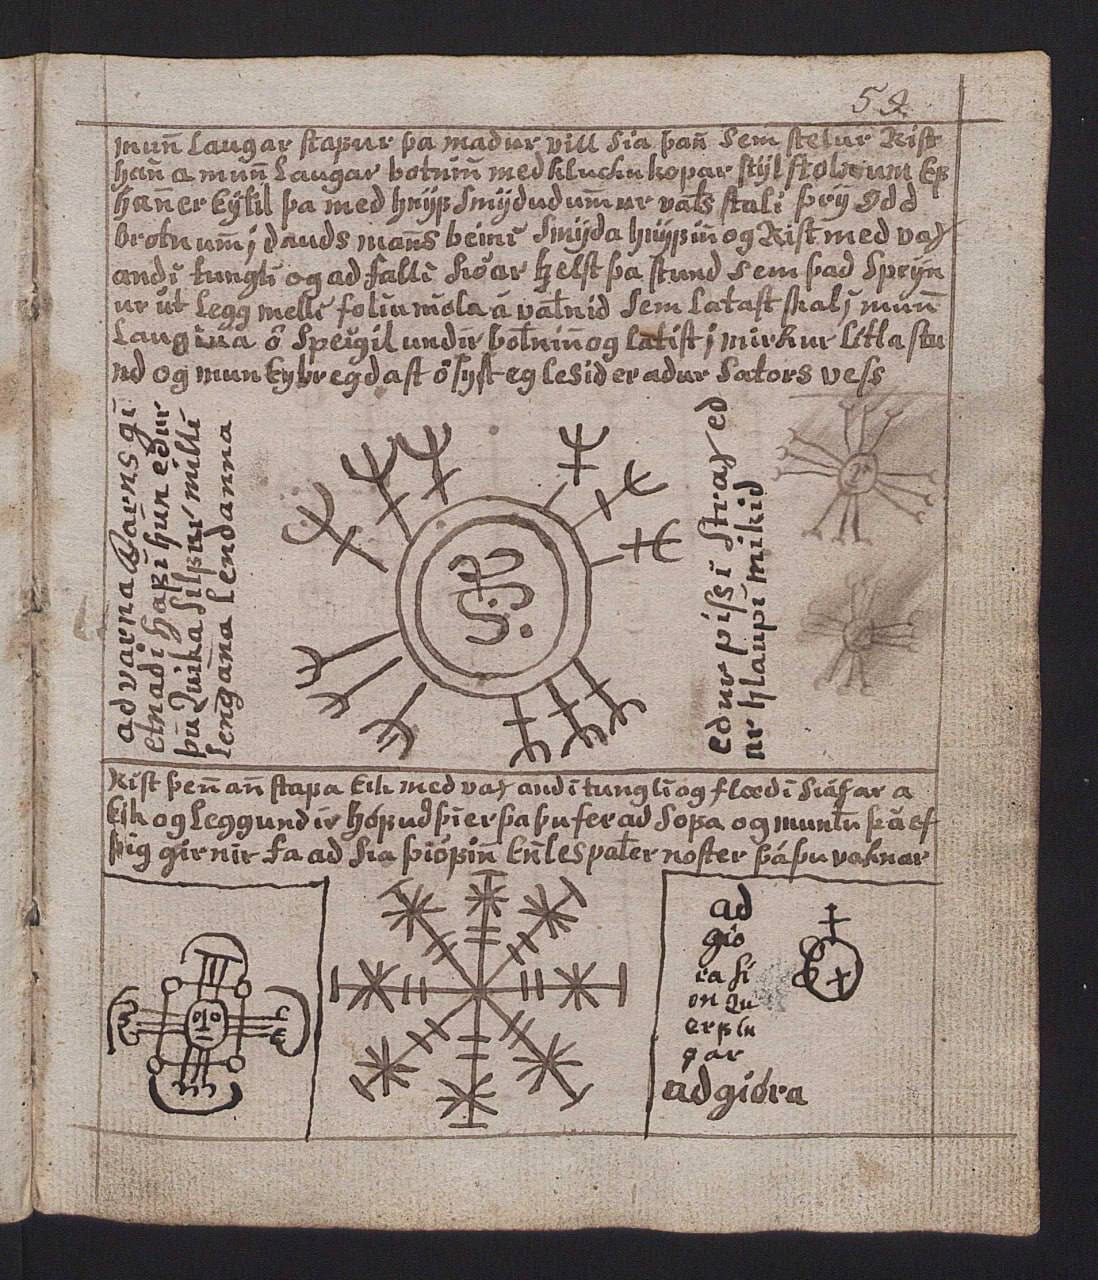 59.
mun̄ laugar stafur þa madur vill sia þan̄ sem stelur Rist
han̄ a mun̄ laugar botnin̄ med kluckukopar stijl stolnum Ef
han̄ er Eÿ til þa med hnijf smijdudum̄ ur vals stali þrÿ Odd
brotnum̄ j dauds man̄s beini Smijda hnijfin̄ og Rist med vax
andi tungli og ad falli siőar helst þa stund sem þad Spryn
ur ut legg melli foliu mola á vatnid sem latast skal j mun̄
laugina ő Speigil undir botnin̄ og latist j mirkur litla stu
nd og mun Eÿ bregdast ő syst eg lesid er adur Sators vess
ad varna barnsgi
etnadi hafi hun edur
þu Quika silfur milli
lengan̄a lendanna
edur piss i strax ed
ur hlaupi mikid
Rist þen̄an̄ stafa Eik med vaxandi tungli og flædi siáfar a
Eik og legg undir hőfud þier þa þu fer ad sofa og muntu fá ef
þig girnir fa ad sia þiőfin̄ En̄ les pater noster þá þu vaknar
ad
gio
ra si
on Qu
erfin
gar
ad gióra